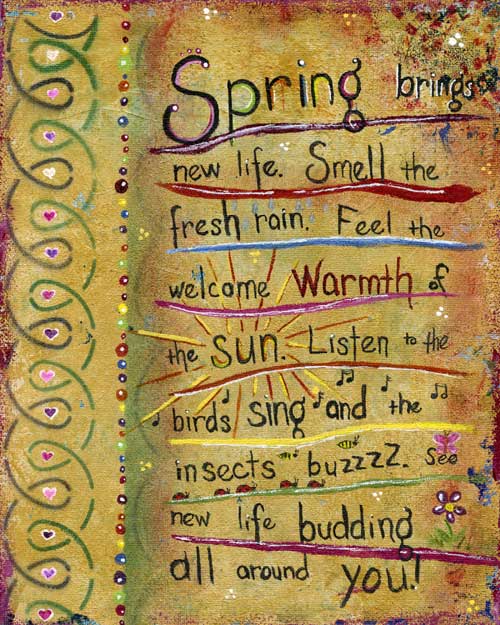 Spring brings
new life. Smell the
fresh rain. Feel the
welcome Warmth of
the sun. Listen to the
birds sing and the
insects buzzzz. See
new life budding
all around you!